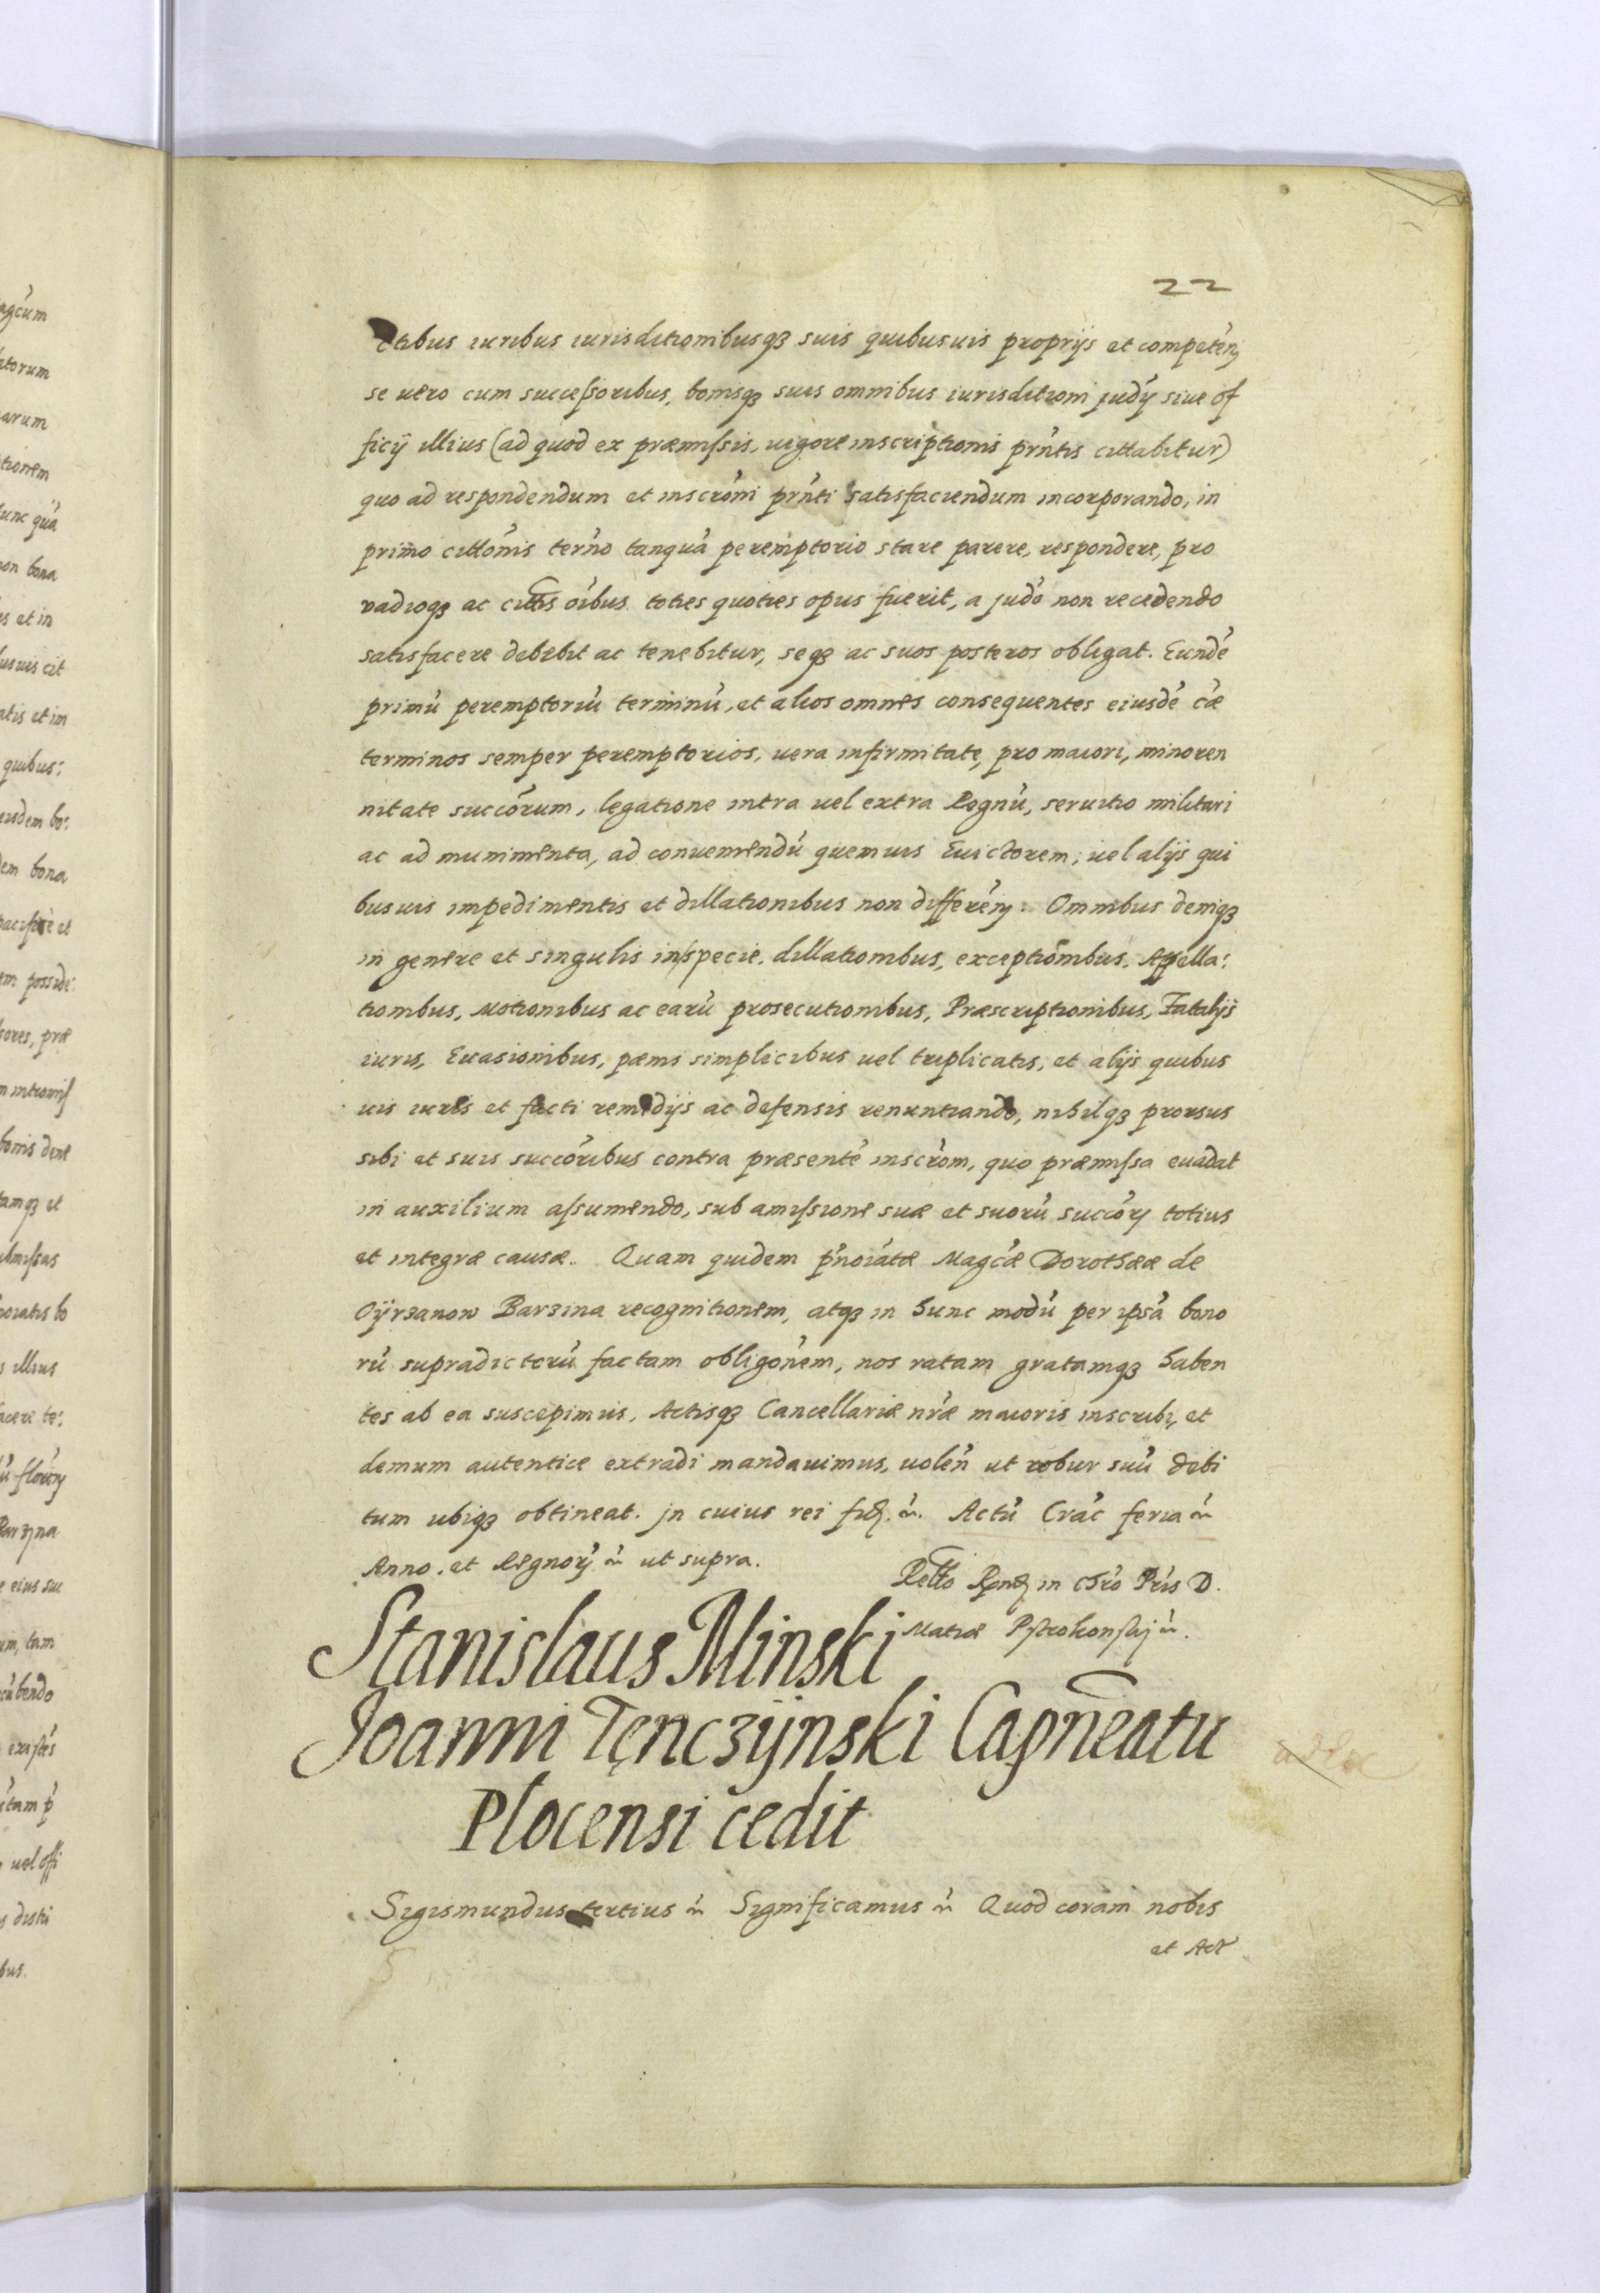 22
ctibus iuribus iurisditionibusqȝ suis quibusuis proprijs et competen̄
se uero cum successoribus, bonisqȝ suis omnibus iurisditioni judӳ siue of
ficij illius (ad quod ex præmissis, uigore inscriptionis prn̄tis cittabitur)
quo ad respondendum et inscrōni prn̄ti satisfaciendum incorporando, in
primo cittōnis tern̄o tanquā peremptorio stare parere, respondere, pro
vadioqȝ ac cittis oībus toties quoties opus fuerit, a judō non recedendo
satisfacere debebit ac tenebitur, seqȝ ac suos posteros obligat. Eundē
primū peremptoriū terminū, et alios omnes consequentes eiusdē cǣ
terminos semper peremptorios, uera infirmitate, pro maiori, minoren
nitate succōrum, legatione intra uel extra Regnū, seruitio militari
ac ad munimenta, ad conueniendū quemuis Euictorem, uel alijs qui
busuis impedimentis et dillationibus non differen̄. Omnibus deniqȝ
in genere et singulis in specie, dillationibus, exceptionibus, Appella:
tionibus, Motionibus ac earū prosecutionibus, Præscriptionibus, Fatalijs
iuris, Euasionibus, pæni simplicibus uel triplicatis, et alijs quibus
uis iuris et facti remedijs ac defensis renuntiando, nihilqȝ prorsus
sibi et suis succōribus contra præsentē inscrōm, quo præmissa euadat
in auxilium assumendo, sub amissione suæ et suorū succōrӯ totius
et integræ causæ. Quam quidem p̄noīatæ Magc̄æ Dorotheæ de
Oÿrzanow Barzina recognitionem, atqȝ in hunc modū per ipsā bono
rū supradictorū factam obligōnem, nos ratam gratamqȝ haben
tes ab ea suscepimus, Actisqȝ Cancellariæ nr̄æ maioris inscribi, et
demum autentice extradi mandauimus, uolen̄ ut robur suū debi
tum ubiqȝ obtineat. jn cuius rei fid. etc. Actū Crac̄ feria etc.
Anno. et Regnorӯ etc. ut supra.
Retto Rnd in Chrō Pr̄is D.
Mathiæ Pstrokonskj etc.
Stanislaus Minski
Joanni Tęnczÿnski Capneatu
Plocensi cedit
Sigismundus tertius etc. Significamus etc. Quod coram nobis
et Act